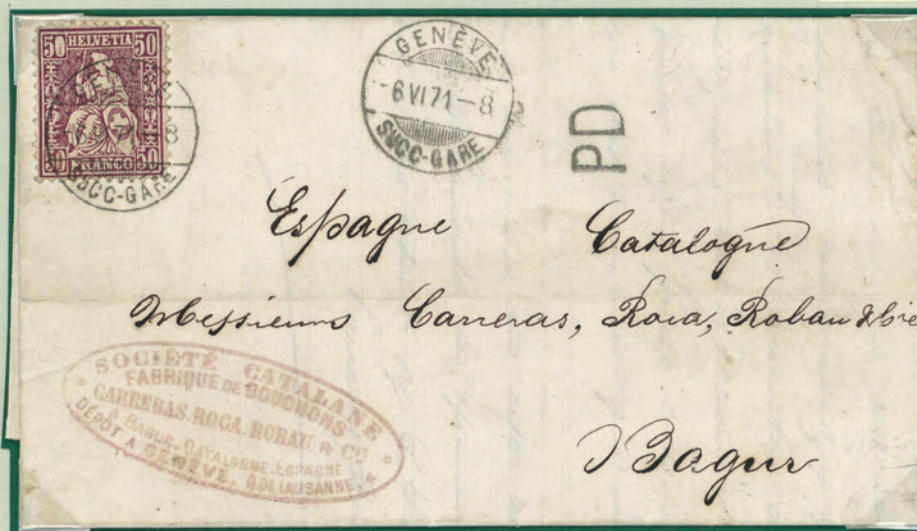 50 HELVETIA 50
FRANCO 50
SUCC-GARE
GENÈVE
-6 VI 71-8
SUCC-GARE
PD
Espagne Catalogne
Messieurs Carreras, Roca, Robau & Cie
SOCIÉTÉ CATALANE
FABRIQUE DE BOUCHONS
CARRERAS, ROCA, ROBAU & CIE
A BAGUR, CATALOGNE, ESPAGNE
DÉPÔT A GENÈVE, DE LAUSANNE
Bagur